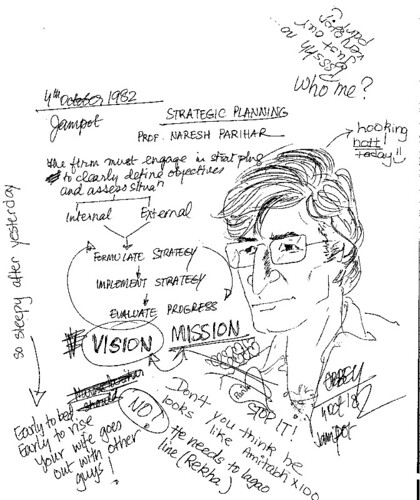 Who me?
4th October 1982
Jampot
STRATEGIC PLANNING
PROF. NARESH PARIHAR
the firm must engage in strat plng
to clearly define objectives
and assess situan
Internal External
FORMULATE STRATEGY
IMPLEMENT STRATEGY
EVALUATE PROGRESS
VISION MISSION
looking
hott!
today!!
so sleepy after yesterday
should
NO!
STOP IT!
Early to bed
Early to rise
Your wife goes
out with other
guys!
Don't you think he
looks like Amitabh x100
He needs to lagao
line (Rekha)
Jampot